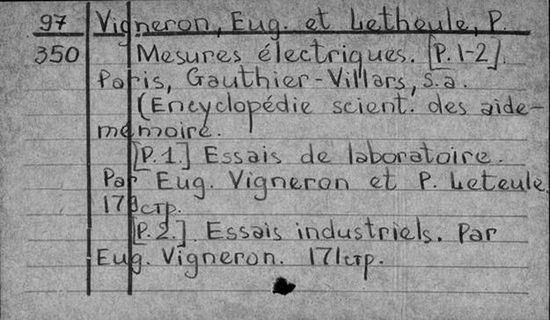 97 Vigneron, Eug. et Letheule, P.
350 Mesures électriques. [P.1-2].
Paris, Gauthier-Villars, s.a.
(Encyclopédie scient. des aide-
mémoire.
[P.1] Essais de laboratoire.
Par Eug. Vigneron et P. Leteule.
179стр.
[P.2.] Essais industriels. Par
Eug. Vigneron. 171стр.